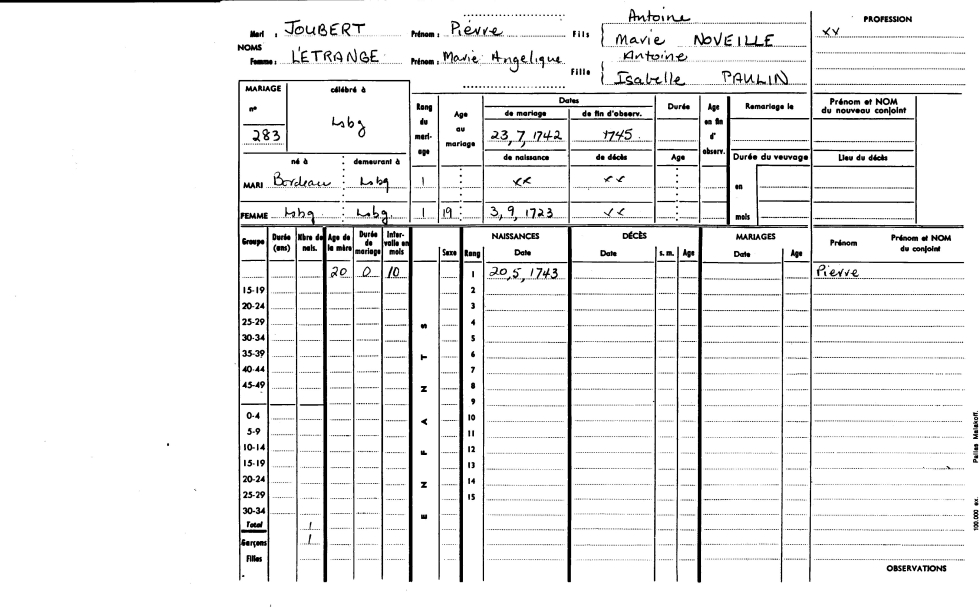 Antoine
PROFESSION
Mari : JOUBERT Prénom : Pierre Fils Marie NOVEILLE xx
NOMS
Antoine
Femme : L'ETRANGE Prénom : Marie Angélique Fille Isabelle PAULIN
MARIAGE célébré à
Dates
n° Lsbg Rang du mari- age Age au mariage de mariage de fin d'observ. Durée Age en fin d' observ. Remariage le Prénom et NOM du nouveau conjoint
283 23, 7, 1742 1745
né à demeurant à de naissance de décès Age Durée du veuvage Lieu du décès
MARI Bordeau Lsbg 1 xx xx en
FEMME Lsbg Lsbg. 1 19 3, 9, 1723 xx mois
Groupe Durée (ans) Nbre de nais. Age de la mère Durée de mariage Inter- valle en mois Sexe Rang NAISSANCES Date DÉCÈS Date s. m. Age MARIAGES Date Age Prénom Prénom et NOM du conjoint
20 0 10 1 20, 5, 1743 Pierre
15-19 2
20-24 3
25-29 4
30-34 5
35-39 6
40-44 7
45-49 8
9
0-4 10
5-9 11
10-14 12
15-19 13
20-24 14
25-29 15
30-34
ENFANTS
Total 1
Garçons 1
Filles
OBSERVATIONS
100.000 ex. Pailles Malakoff.